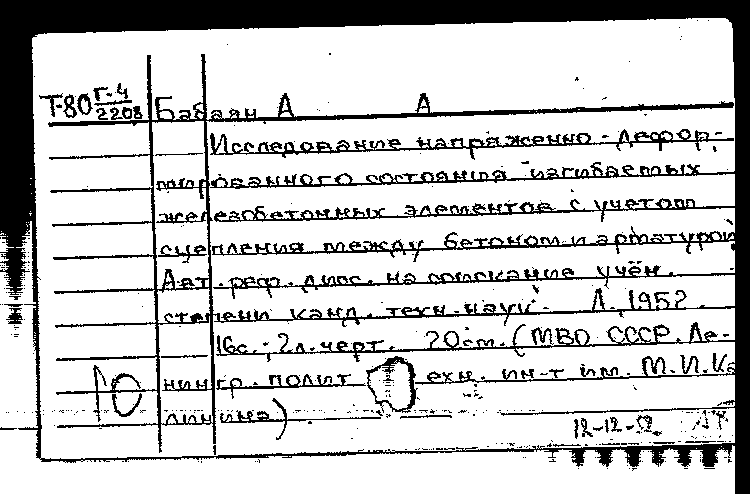 Т-80 Г-4/2208 Бабаян А А
Исследование напряженно-дефор-
мированного состояния изгибаемых
железобетонных элементов с учетом
сцепления между бетоном и арматурой
Авт. реф. дисс. на соискание учён.
степени канд. техн. наук. Л., 1952.
16с.; 2л. черт. 20см. (МВО СССР. Ле-
нингр. полит ехн. ин-т им. М.И.Ка
линина).
10
12-12-52